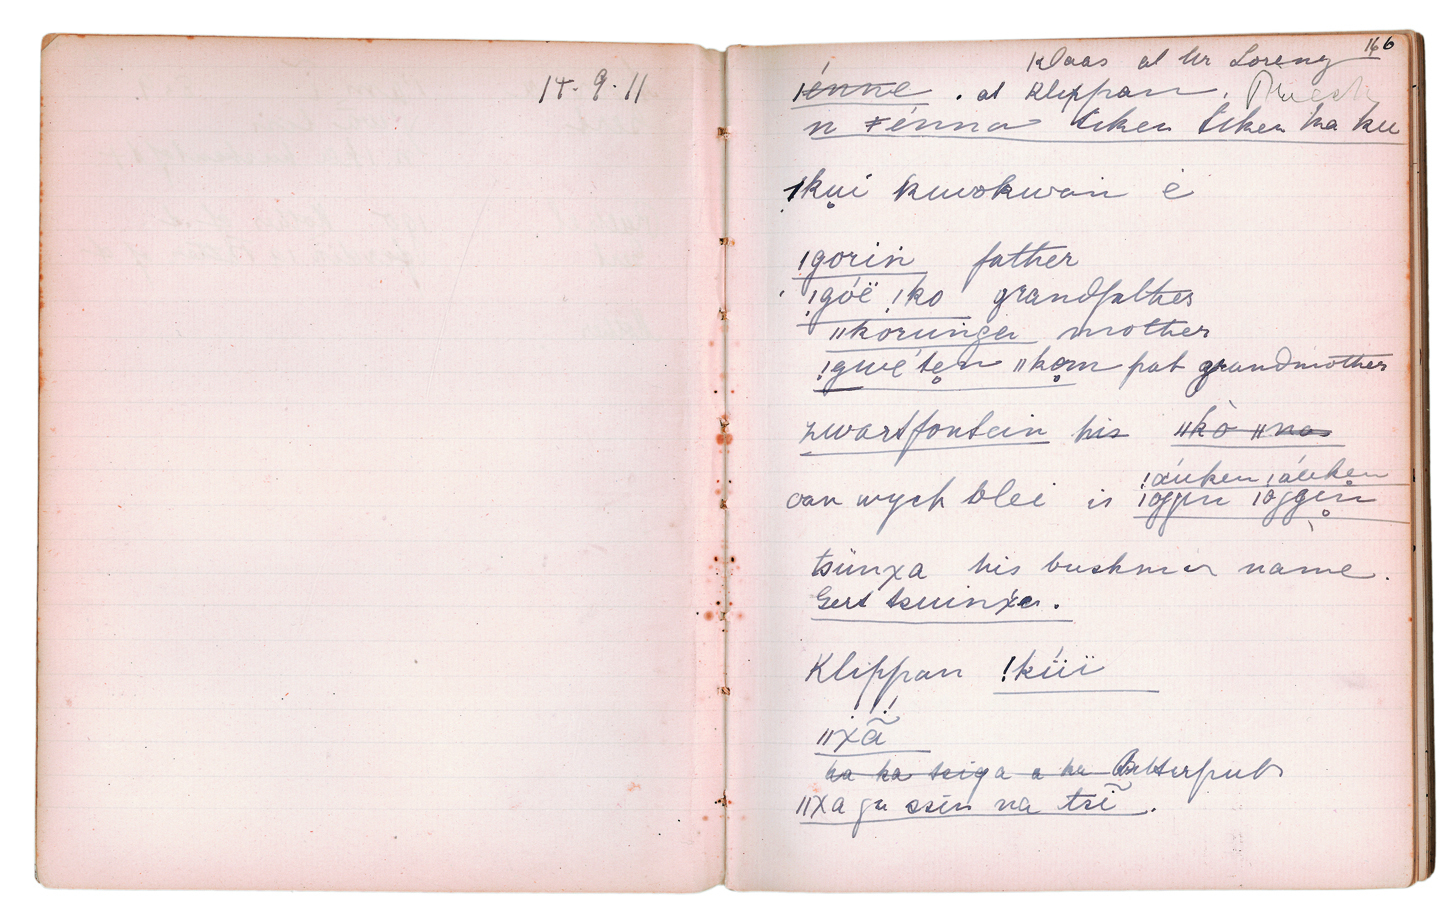 14.9.11
166
Klaas at Mr Loreny
ǀénne . at Klippan.
n ǂénna tiken tiken ka ku
ǃkui kwokwain é
ǀgorin father
ǃgóë ǃko grandfather
ǁkorunga mother
ǃgwéten ǁkom pat grandmother
Zwartfontein his ǁkò ǁnas
van wyck vlei is
ǃáuken ǀáuken
tsünχa his bushman name.
Gert tsuinχa.
Klippan ǃkúï
ǁχã
ha ka tsiga a ke Bitterputs
ǁχa gu ssin na tsĩ.